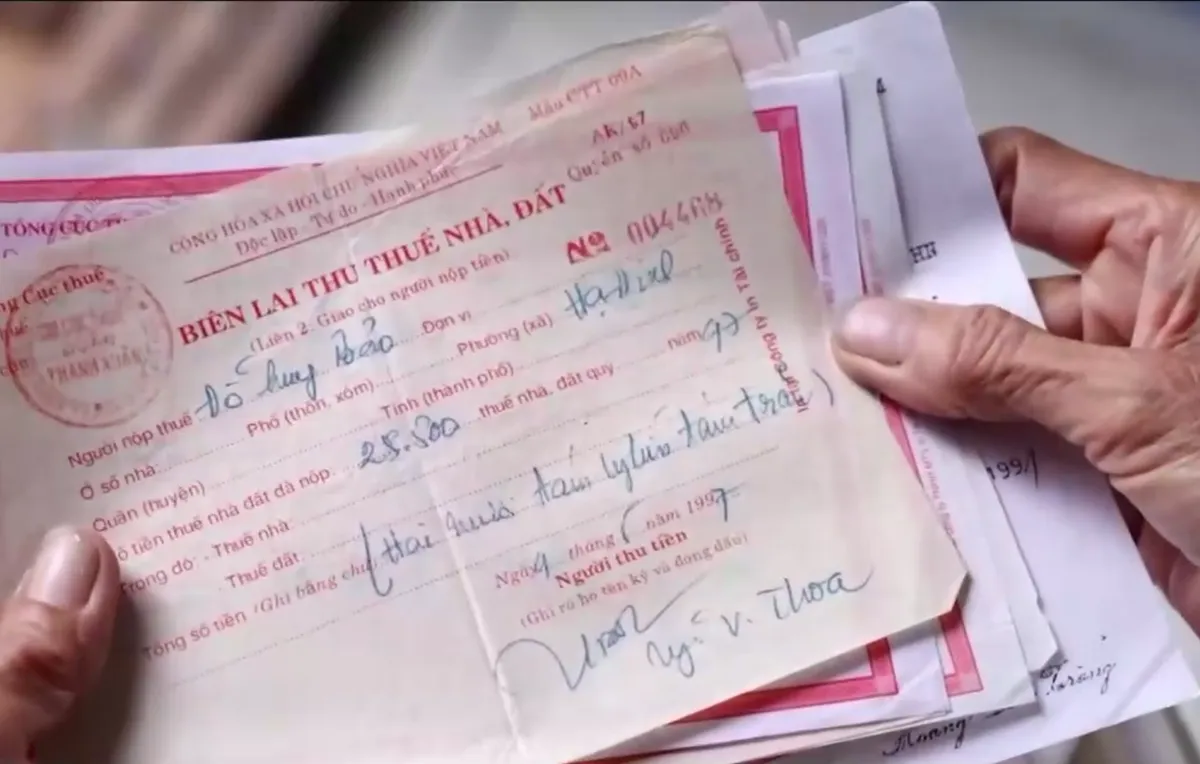 CỘNG HÒA XÃ HỘI CHỦ NGHĨA VIỆT NAM
Độc lập - Tự do - Hạnh phúc
Mẫu CTT 09A
AK/97
Quyển số
BIÊN LAI THU THUẾ NHÀ, ĐẤT
(Liên 2: Giao cho người nộp tiền)
Nº 0044
Người nộp thuế Đỗ Bảo Đơn vị
Ở số nhà: Phố (thôn, xóm) Phường (xã) Hạ Đình
Quận (huyện) Tỉnh (thành phố)
Số tiền thuế nhà đất đã nộp 28.500 thuế nhà, đất quý năm 97
Trong đó: - Thuế nhà:
Thuế đất:
Tổng số tiền (Ghi bằng chữ) (Hai mươi tám nghìn năm trăm)
Ngày 4 tháng năm 1997
Người thu tiền
(Ghi rõ họ tên ký và đóng dấu)
V. Thoa
In tại Công ty In Tài chính
Tổng Cục thuế
THANH XUÂN
TỔNG CỤC
HN
1991
Hoàng